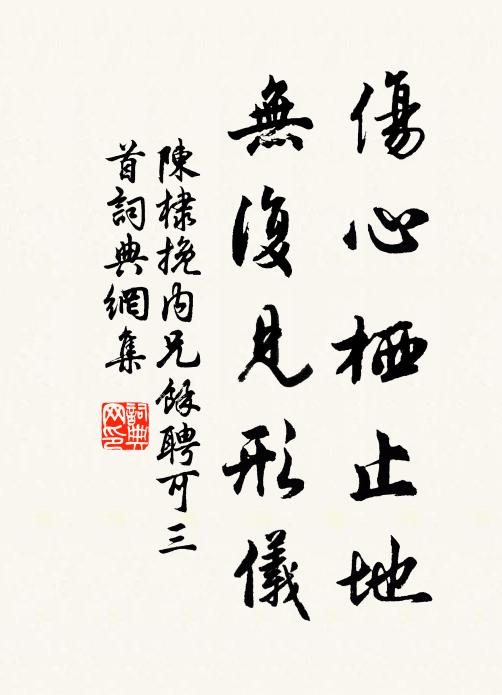 傷心栖止地
無復見形儀
陳棣挽內兄餘聘可三
首詞典網集
詞典
网印